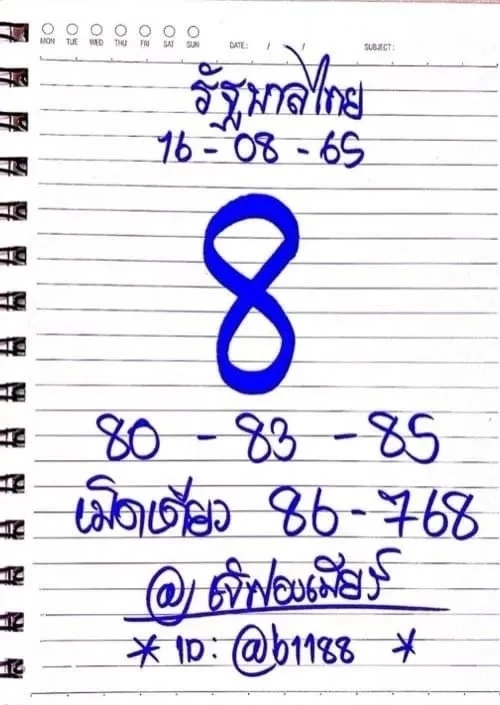 MON TUE WED THU FRI SAT SUN DATE: / / SUBJECT:
รัฐบาลไทย
16-08-65
8
80 - 83 - 85
เม็ดเดียว 86-768
@
* ID: @b1188 *